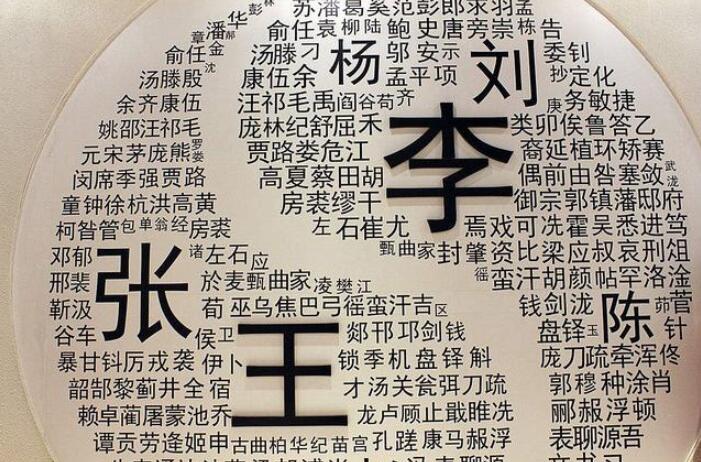 彭
华 苏潘葛奚范彭郎求羽孟
章潘郝 俞任袁柳陆鲍史唐旁崇栋告
俞任金 汤滕刁杨邬安示刘委钊
汤滕殷沈 康伍余孟平项抄定化
余齐康伍 汪祁毛禹阎谷荀齐庚务敏捷
姚邵汪祁毛 庞林纪舒屈禾李类卯俟鲁答乙
元宋茅庞熊罗娄 贾路娄危江裔延植环矫赛
闵席季强贾路 高夏蔡田胡偶前由咎塞敛武泷
童钟徐杭洪高黄 房裘缪干御宗郭镇潘邸府
柯昝管包单翁经房裘 左石崔尤焉戏可冼霍吴悉进笃
邓郁张诸左石应 甄曲家封肇资比梁应叔哀刑俎
邢裴於麦甄曲家凌樊江 徭蛮汗胡颜帖罕洛淦
靳汲荀巫乌焦巴弓徭蛮汗吉区 钱剑泷陈茆菅
谷车侯卫王郯邗邛剑钱 盘铎玉针
暴甘钭厉戎袭伊卜 锁季机盘铎斛 庞刀疏牵浑佟
韶郜黎蓟井全宿 才汤关瓮弭刀疏 郭穆种涂肖
赖卓蔺屠蒙池乔 龙卢顾止戢睢冼 郦赧浮顿
谭贡劳逄姬申古曲柏华纪苗宫孔蹉康马赧浮 表聊源吾